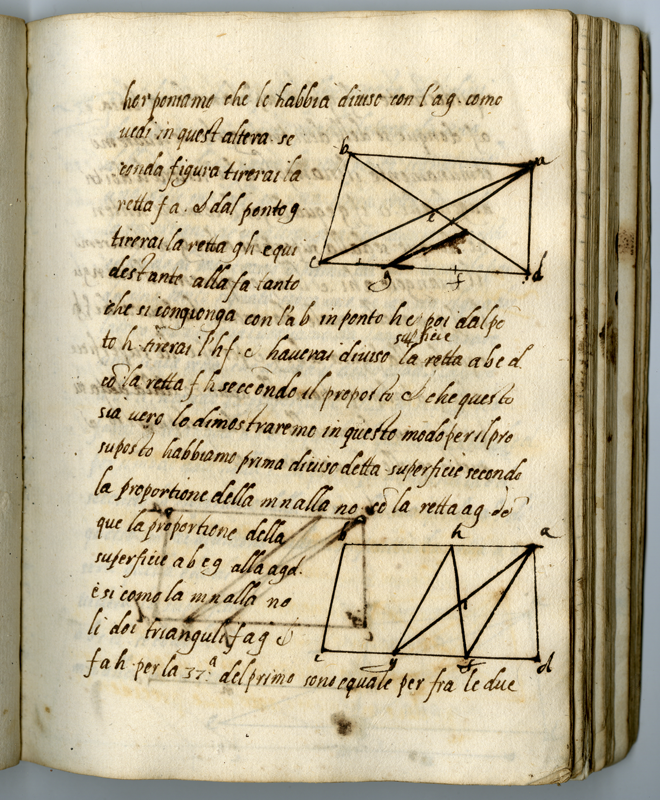 hor poniamo che le habbia diuiso con l'a g. como
uedi in quest altera. se
conda figura tirerai la
retta f a. & dal ponto g
tirerai la retta g h. equi
destante alla fa tanto
che si congionga con l'a b in ponto h e poi dal põ
to h. tirerai l'h f. e haverai diuiso la retta a b c d.
superficie
cõ la retta f h seccondo il proposto & che questo
sia vero lo dimostraremo in questo modo per il pre
suposto habbiamo prima diuiso detta superficie secondo
la proportione della m n alla no. cõ la retta a g
que la proportione della
superficie a b c g alla agd.
è si como la m n alla no
li doi trianguli f a g &
f a h per la 37.ª del primo sono equale per fra le due
b a
e
c g f d
b h a
c g f d